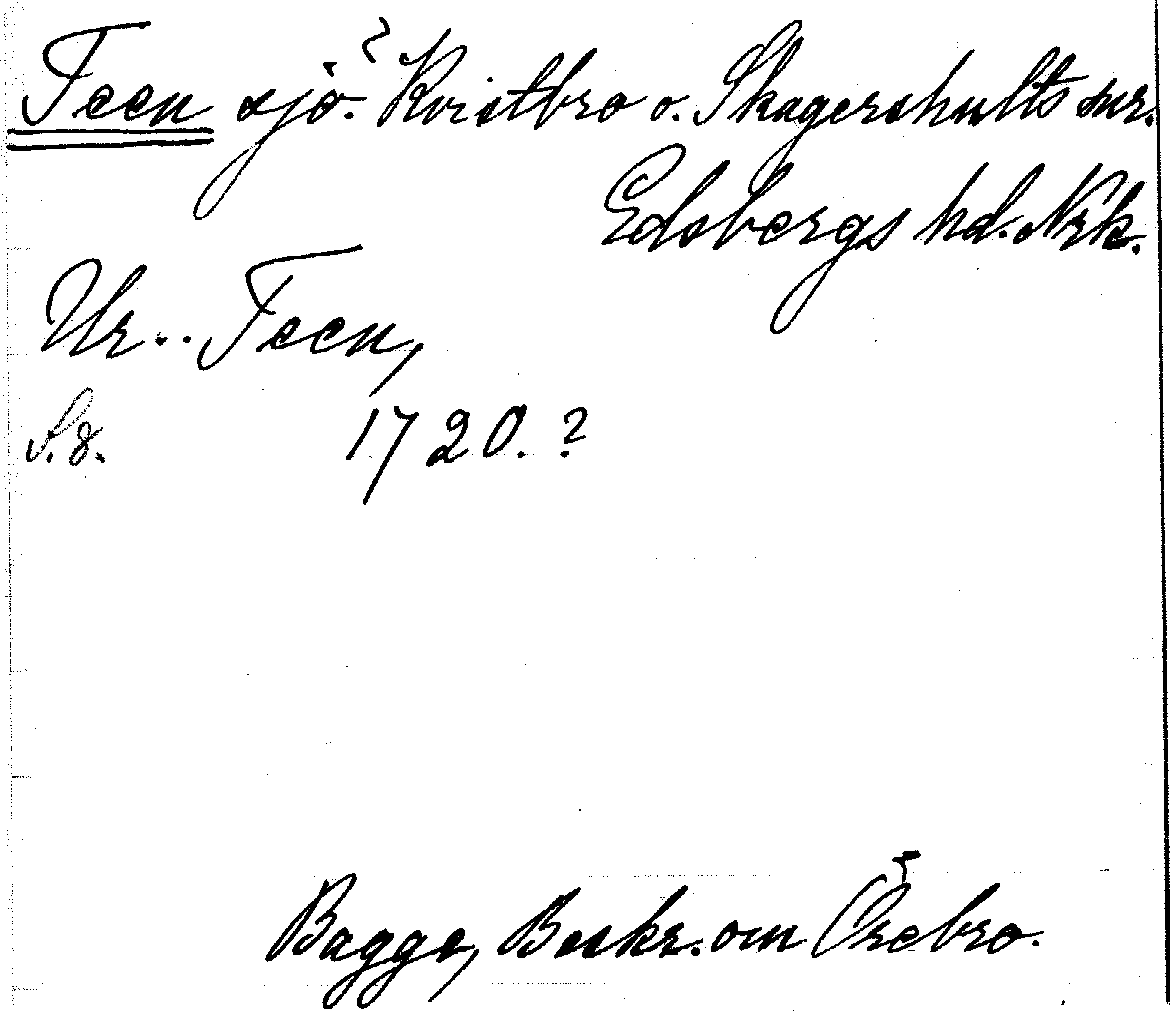 Teen sjö. Kvistbro o. Skagershults snr.
Edsbergs hd. Nrk.
Ur.. Teen,
S. 8. 1720. ?
Bagge, Beskr. om Örebro.